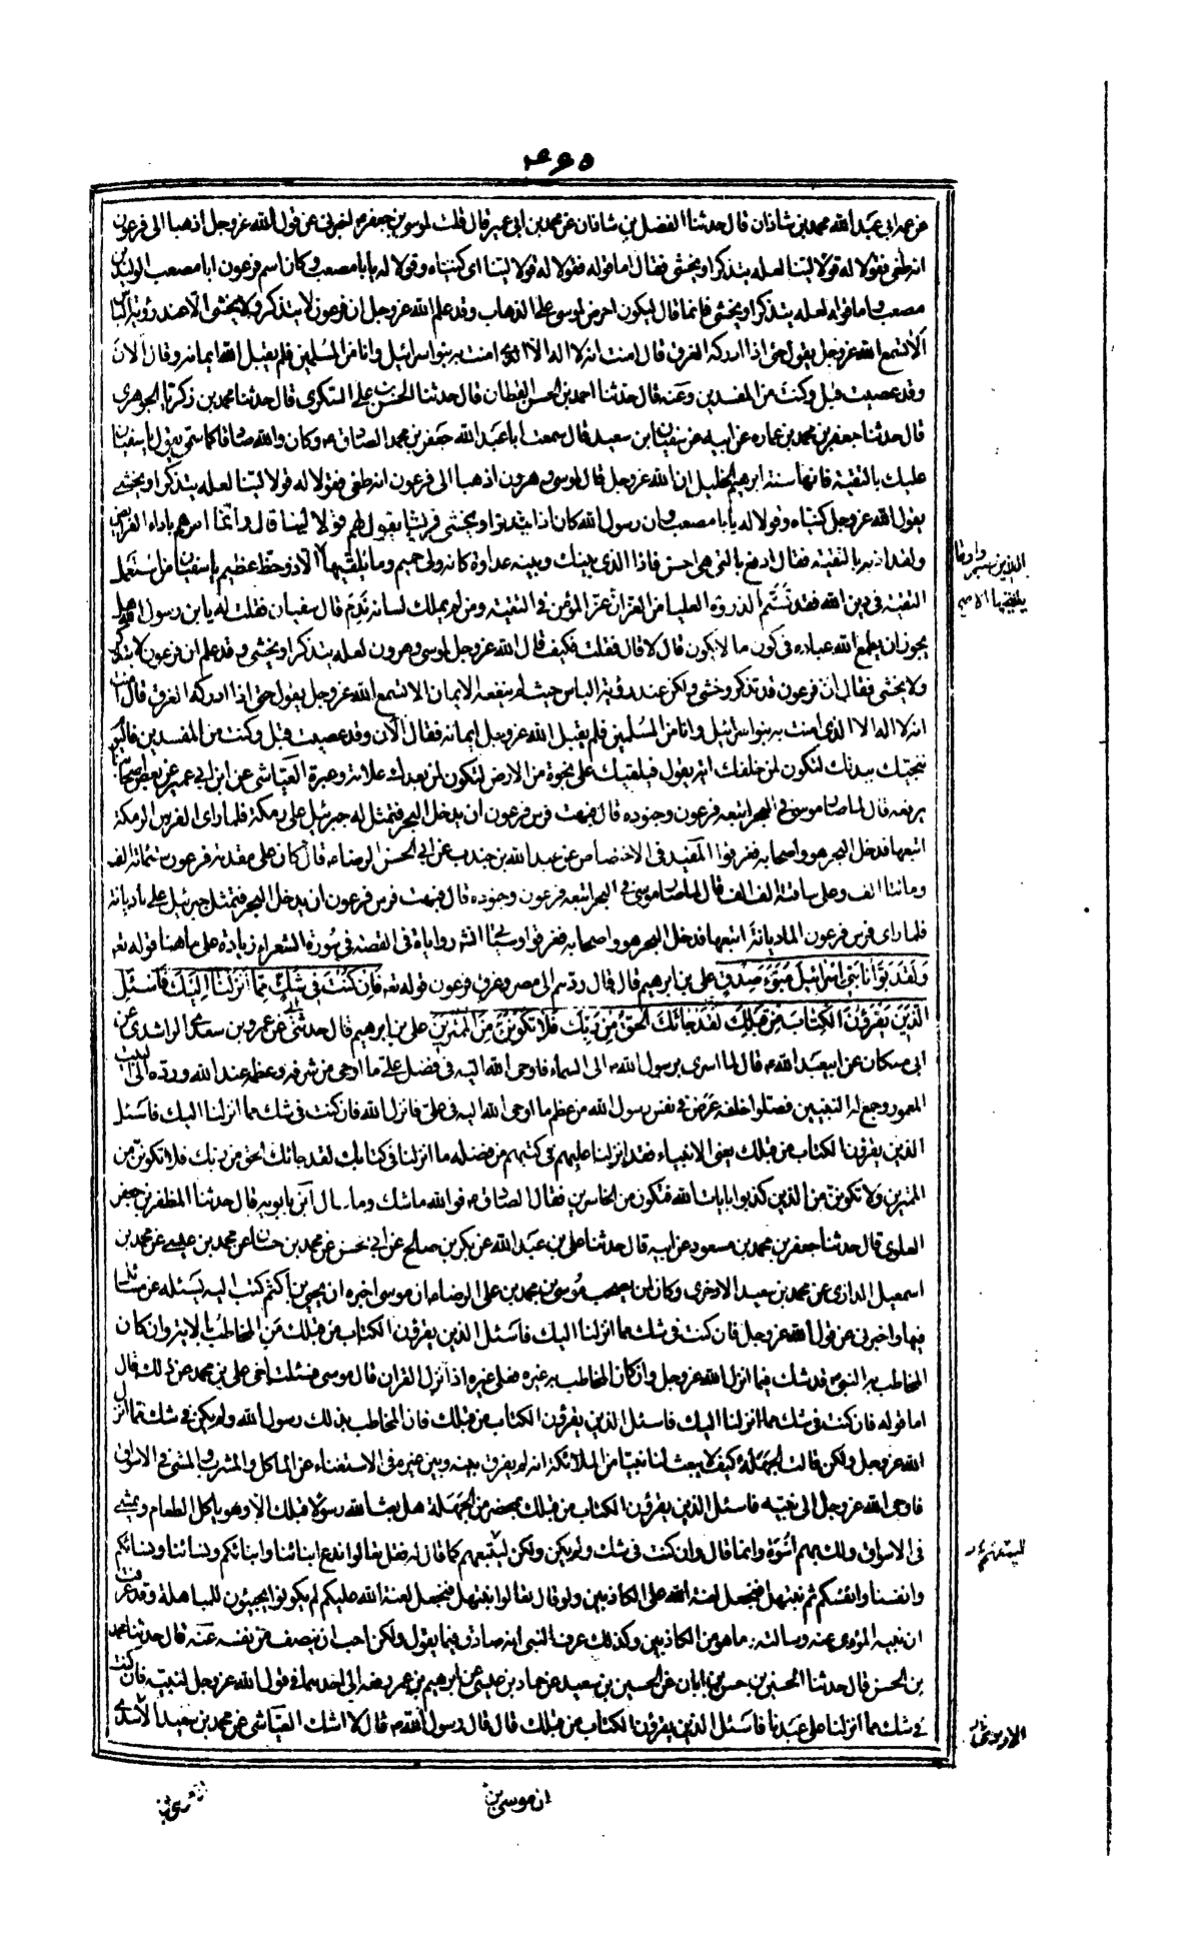 ۴۶۵
عن عمه ابى عبد الله محمد بن شاذان قال حدثنا الفضل بن شاذان عن محمد بن ابى عمير قال قلت لموسى بن جعفر م اخبرنى عن قول الله عز وجل اذهبا الى فرعون
انه طغى فقولا له قولا لينا لعله يتذكر او يخشى فقال اما قوله فقولا له قولا لينا اى كنياه وقولا له يا ابا مصعب وكان اسم فرعون ابا مصعب الوليد بن
مصعب واما قوله لعله يتذكر او يخشى فانما قال ليكون احرص لموسى على الذهاب وقد علم الله عز وجل ان فرعون لا يتذكر ولا يخشى الا عند رؤية الباس
الا تسمع الله عز وجل يقول حتى اذا ادركه الغرق قال امنت انه لا اله الا الذى امنت به بنو اسرائيل وانا من المسلمين فلم يقبل الله ايمانه وقال الان
وقد عصيت قبل وكنت من المفسدين وعنه قال حدثنا احمد بن الحسن القطان قال حدثنا الحسن بن على السكرى قال حدثنا محمد بن زكريا الجوهرى
قال حدثنا جعفر بن محمد بن عماره عن ابيه عن سفيان بن سعيد قال سمعت ابا عبد الله جعفر بن محمد الصادق م وكان والله صادقا كما سمى يقول يا سفيان
عليك بالتقية فانها سنة ابرهيم الخليل ان الله عز وجل قال لموسى وهرون اذهبا الى فرعون انه طغى فقولا له قولا لينا لعله يتذكر او يخشى
يقول الله عز وجل كنياه وقولا له يا ابا مصعب وان رسول الله كان اذا
ولقد ادبه بالتقية فقال ادفع بالتى هى احسن فاذا الذى بينك وبينه عداوة كانه ولى حميم وما يلقيها الا ذو حظ عظيم يا سفيان من استعمل
التقية فى دين الله فقد تسنم الذروة العليا من القران عز المؤمن فى التقية ومن لم يملك لسانه ندم قال سفيان فقلت له يا بن رسول الله هل
يجوز ان يطمع الله عباده فى كون ما لا يكون قال لا قال فقلت فكيف قال الله عز وجل لموسى وهرون لعله يتذكر او يخشى وقد علم ان فرعون لا يتذكر
ولا يخشى فقال ان فرعون قد تذكر وخشى ولكن عند رؤية الباس حيث لم ينفعه الايمان الا تسمع الله عز وجل يقول حتى اذا ادركه الغرق قال امنت
انه لا اله الا الذى امنت به بنو اسرائيل وانا من المسلمين فلم يقبل الله عز وجل ايمانه فقال الان وقد عصيت قبل وكنت من المفسدين فاليوم
ننجيك ببدنك لتكون لمن خلفك اية يقول فيلقيك على نجوة من الارض لتكون لمن بعدك علامة وعبرة العياشى عن ابن ابى عمير عن بعض اصحابنا
يرفعه قال لما صار موسى فى البحر اتبعه فرعون وجنوده قال فتهيب فرس فرعون ان يدخل البحر فتمثل له جبرئيل على رمكة فلما راى الفرس الرمكة
اتبعها فدخل البحر هو واصحابه فغرقوا المفيد فى الاختصاص عن عبد الله بن جندب عن ابى الحسن الرضا ع قال كان على مقدمة فرعون ستمائة الف
ومائتا الف وعلى ساقته الف الف قال لما صار موسى فى البحر اتبعه فرعون وجنوده قال فتهيب فرس فرعون ان يدخل البحر فتمثل جبرئيل على ماديانة
فلما راى فرس فرعون الماديانة اتبعها فدخل البحر هو واصحابه فغرقوا وسياتى انشاء الله رواياة فى القصة فى سورة الشعراء زيادة على ما هنا قوله تعه
وَلَقَدْ بَوَّأْنَا بَنِي إِسْرَائِيلَ مُبَوَّءَ صِدْقٍ على بن ابرهيم قال قال ردهم الى مصر وغرق فرعون قوله تعه فَإِنْ كُنْتَ فِي شَكٍّ مِمَّا أَنْزَلْنَا إِلَيْكَ فَاسْئَلِ
الَّذِينَ يَقْرَؤُنَ الْكِتَابَ مِنْ قَبْلِكَ لَقَدْ جَاءَكَ الْحَقُّ مِنْ رَبِّكَ فَلَا تَكُونَنَّ مِنَ الْمُمْتَرِينَ على بن ابرهيم قال حدثنى ابى عن عمرو بن سعيد الراشدى عن
ابن مسكان عن ابيعبد الله م قال لما اسرى برسول الله ص الى السماء فاوحى الله اليه فى فضل على ما اوحى من شرفه وعظمه عند الله ورده الى البيت
المعمور وجمع له النبيين فصلوا خلفه عرض فى نفس رسول الله من عظم ما اوحى الله اليه فى على فانزل الله فان كنت فى شك مما انزلنا اليك فاسئل
الذين يقرؤن الكتاب من قبلك يعنى الانبياء فقد انزلنا عليهم فى كتبهم من فضله ما انزلنا فى كتابك لقد جائك الحق من ربك فلا تكونن من
الممترين ولا تكونن من الذين كذبوا بايات الله فتكون من الخاسرين فقال الصادق م فو الله ما شك وما سال ابن بابويه قال حدثنا المظفر بن جعفر
العلوى قال حدثنا جعفر بن محمد بن مسعود عن ابيه قال حدثنا على بن عبد الله عن بكر بن صالح عن ابى عن محمد بن حسان عن محمد بن عيسى عن محمد بن
اسمعيل الدارى عن محمد بن سعيد وكان ممن يصحب موسى بن محمد بن على الرضا ان موسى اخبره ان يحيى بن اكثم كتب اليه يسئله عن مسائل
فيها واخبرنى عن قول الله عز وجل فان كنت فى شك مما انزلنا اليك فاسئل الذين يقرؤن الكتاب من قبلك من المخاطب بالاية وان كان
المخاطب به النبى ص قد شك فيما انزل الله عز وجل وان كان المخاطب به غيره فعلى غيره اذا انزل القران قال موسى فسئلت اخى على بن محمد عن ذلك قال
اما قوله فان كنت فى شك مما انزلنا اليك فاسئل الذين يقرؤن الكتاب من قبلك فان المخاطب بذلك رسول الله ولم يكن فى شك مما انزل
الله عز وجل ولكن قالت الجهلة كيف لا يبعث لنا نبيا من الملائكة انه لم يفرق بينه وبين غيره فى الاستغناء عن الماكل والمشرب والمشى فى الاسواق
فاوحى الله عز وجل الى نبيه فاسئل الذين يقرؤن الكتاب من قبلك بمحضر من الجهلة هل بعث الله رسولا قبلك الا وهو ياكل الطعام ويمشى
فى الاسواق ولك بهم اسوة وانما قال وان كنت فى شك ولم يكن ولكن ليتبعهم كما قال له فقل تعالوا ندع ابنائنا وابنائكم ونسائنا ونسائكم
وانفسنا وانفسكم ثم نبتهل فنجعل لعنة الله على الكاذبين ولو قال تعالوا نبتهل فنجعل لعنة الله عليكم لم يكونوا يجيبون للمباهلة وقد عرف
ان نبيه المؤدى عنه رسالته ما هو من الكاذبين وكذلك عرف النبى انه صادق فيما يقول ولكن احب ان ينصف من نفسه عنه قال حدثنا محمد
بن الحسن قال حدثنا الحسين بن حسن بن ابان عن الحسين بن سعيد عن حماد بن عيسى عن ابرهيم بن عمر رفعه الى احدهما فى قول الله عز وجل لنبيه فان كنت
فى شك مما انزلنا على عبدنا فاسئل الذين يقرؤن الكتاب من قبلك قال قال رسول الله ص قال لا اشك العياشى عن محمد بن سعيد الاسدى
ان موسى بن